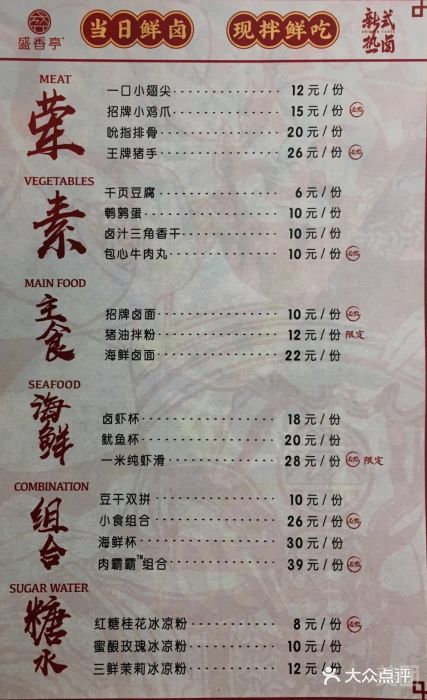 盛香亭
当日鲜卤 现拌鲜吃
新式热卤
MEAT
荤
一口小翅尖 12 元/份
招牌小鸡爪 15 元/份
吮指排骨 20 元/份
王牌猪手 26 元/份
VEGETABLES
素
千页豆腐 6 元/份
鹌鹑蛋 10 元/份
卤汁三角香干 10 元/份
包心牛肉丸 10 元/份
MAIN FOOD
主食
招牌卤面 10 元/份
猪油拌粉 12 元/份 限定
海鲜卤面 22 元/份
SEAFOOD
海鲜
卤虾杯 18 元/份
鱿鱼杯 20 元/份
一米纯虾滑 28 元/份 限定
COMBINATION
组合
豆干双拼 10 元/份
小食组合 26 元/份
海鲜杯 30 元/份
肉霸霸™组合 39 元/份
SUGAR WATER
糖水
红糖桂花冰凉粉 8 元/份
蜜酿玫瑰冰凉粉 10 元/份
三鲜茉莉冰凉粉 12 元/份
大众点评